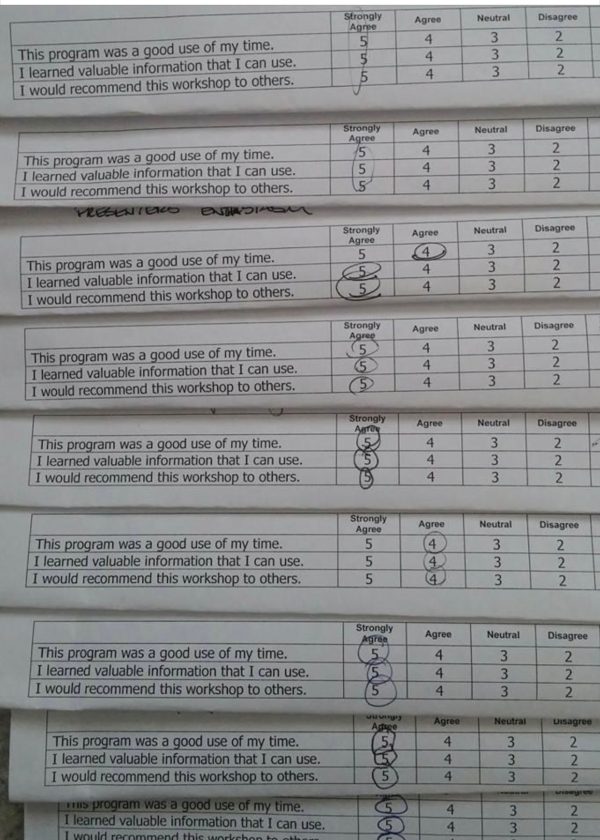 Strongly Agree Agree Neutral Disagree
This program was a good use of my time. 5 4 3 2
I learned valuable information that I can use. 5 4 3 2
I would recommend this workshop to others. 5 4 3 2
Strongly Agree Agree Neutral Disagree
This program was a good use of my time. 5 4 3 2
I learned valuable information that I can use. 5 4 3 2
I would recommend this workshop to others. 5 4 3 2
PRESENTERS ENTHUSIASM
Strongly Agree Agree Neutral Disagree
This program was a good use of my time. 5 4 3 2
I learned valuable information that I can use. 5 4 3 2
I would recommend this workshop to others. 5 4 3 2
Strongly Agree Agree Neutral Disagree
This program was a good use of my time. 5 4 3 2
I learned valuable information that I can use. 5 4 3 2
I would recommend this workshop to others. 5 4 3 2
Strongly Agree Agree Neutral Disagree
This program was a good use of my time. 5 4 3 2
I learned valuable information that I can use. 5 4 3 2
I would recommend this workshop to others. 5 4 3 2
Strongly Agree Agree Neutral Disagree
This program was a good use of my time. 5 4 3 2
I learned valuable information that I can use. 5 4 3 2
I would recommend this workshop to others. 5 4 3 2
Strongly Agree Agree Neutral Disagree
This program was a good use of my time. 5 4 3 2
I learned valuable information that I can use. 5 4 3 2
I would recommend this workshop to others. 5 4 3 2
Strongly Agree Agree Neutral Disagree
This program was a good use of my time. 5 4 3 2
I learned valuable information that I can use. 5 4 3 2
I would recommend this workshop to others. 5 4 3 2
This program was a good use of my time. 5 4 3 2
I learned valuable information that I can use. 5 4 3 2
I would recommend this workshop to others. 5 4 3 2